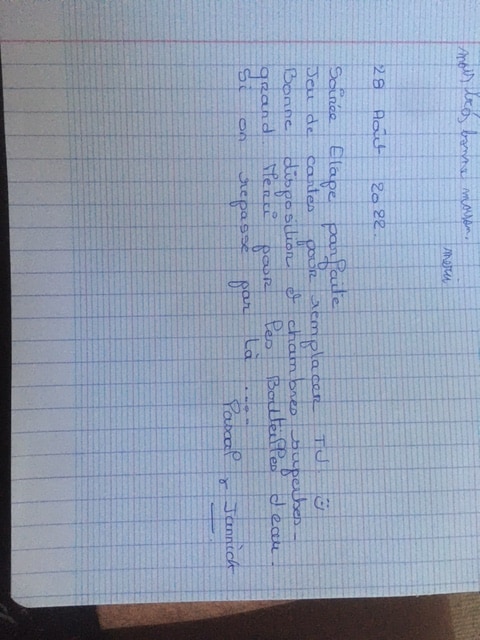 très bonne
merci
28 Août 2022.
Soirée Etape parfaite
Jeu de cartes pour remplacer TV ☺
Bonne disposition & chambres superbes -
grand Merci pour les Bouteilles d'eau.
Si on repasse par là .....
Pascal & Jannick